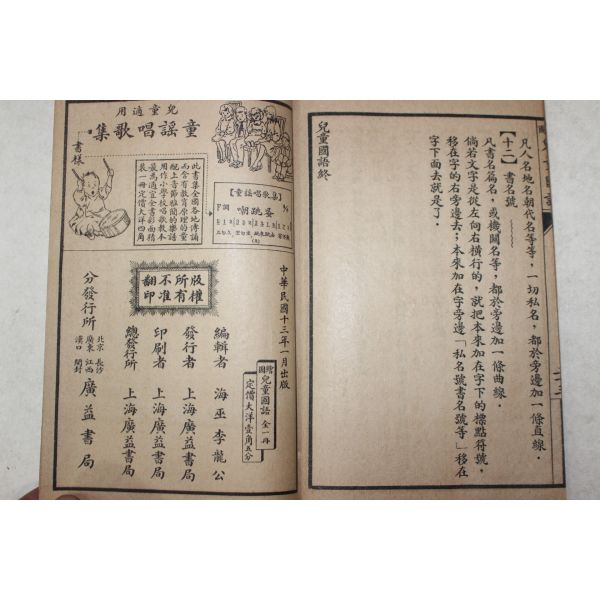 凡人名地名朝代名等等，一切私名，都於旁邊加一條直線．
【十二】書名號
凡書名篇名，或機關名等，都於旁邊加一條曲線．
倘若文字是從左向右橫行的，就把本來加在字下的標點符號，
移在字的右旁邊去；本來加在字旁邊「私名號書名號等」移在
字下面去就是了．
兒童國語終
兒童適用
童謠唱歌集
書樣
【童謠唱歌集】
蚤跳嘲
此書集全國各地傳誦
而含有教育原理的童
配上音節雅簡的樂譜
用作小學校唱歌教本
最爲適宜全書彩面精
裝一冊定價大洋四角
版權所有不准翻印
中華民國十三年一月出版
繪圖兒童國語 全一冊
定價大洋壹角五分
編輯者 海巫 李龍公
發行者 上海廣益書局
印刷者 上海廣益書局
總發行所 上海廣益書局
分發行所 北京 廣東 漢口 長沙 江西 開封 廣益書局